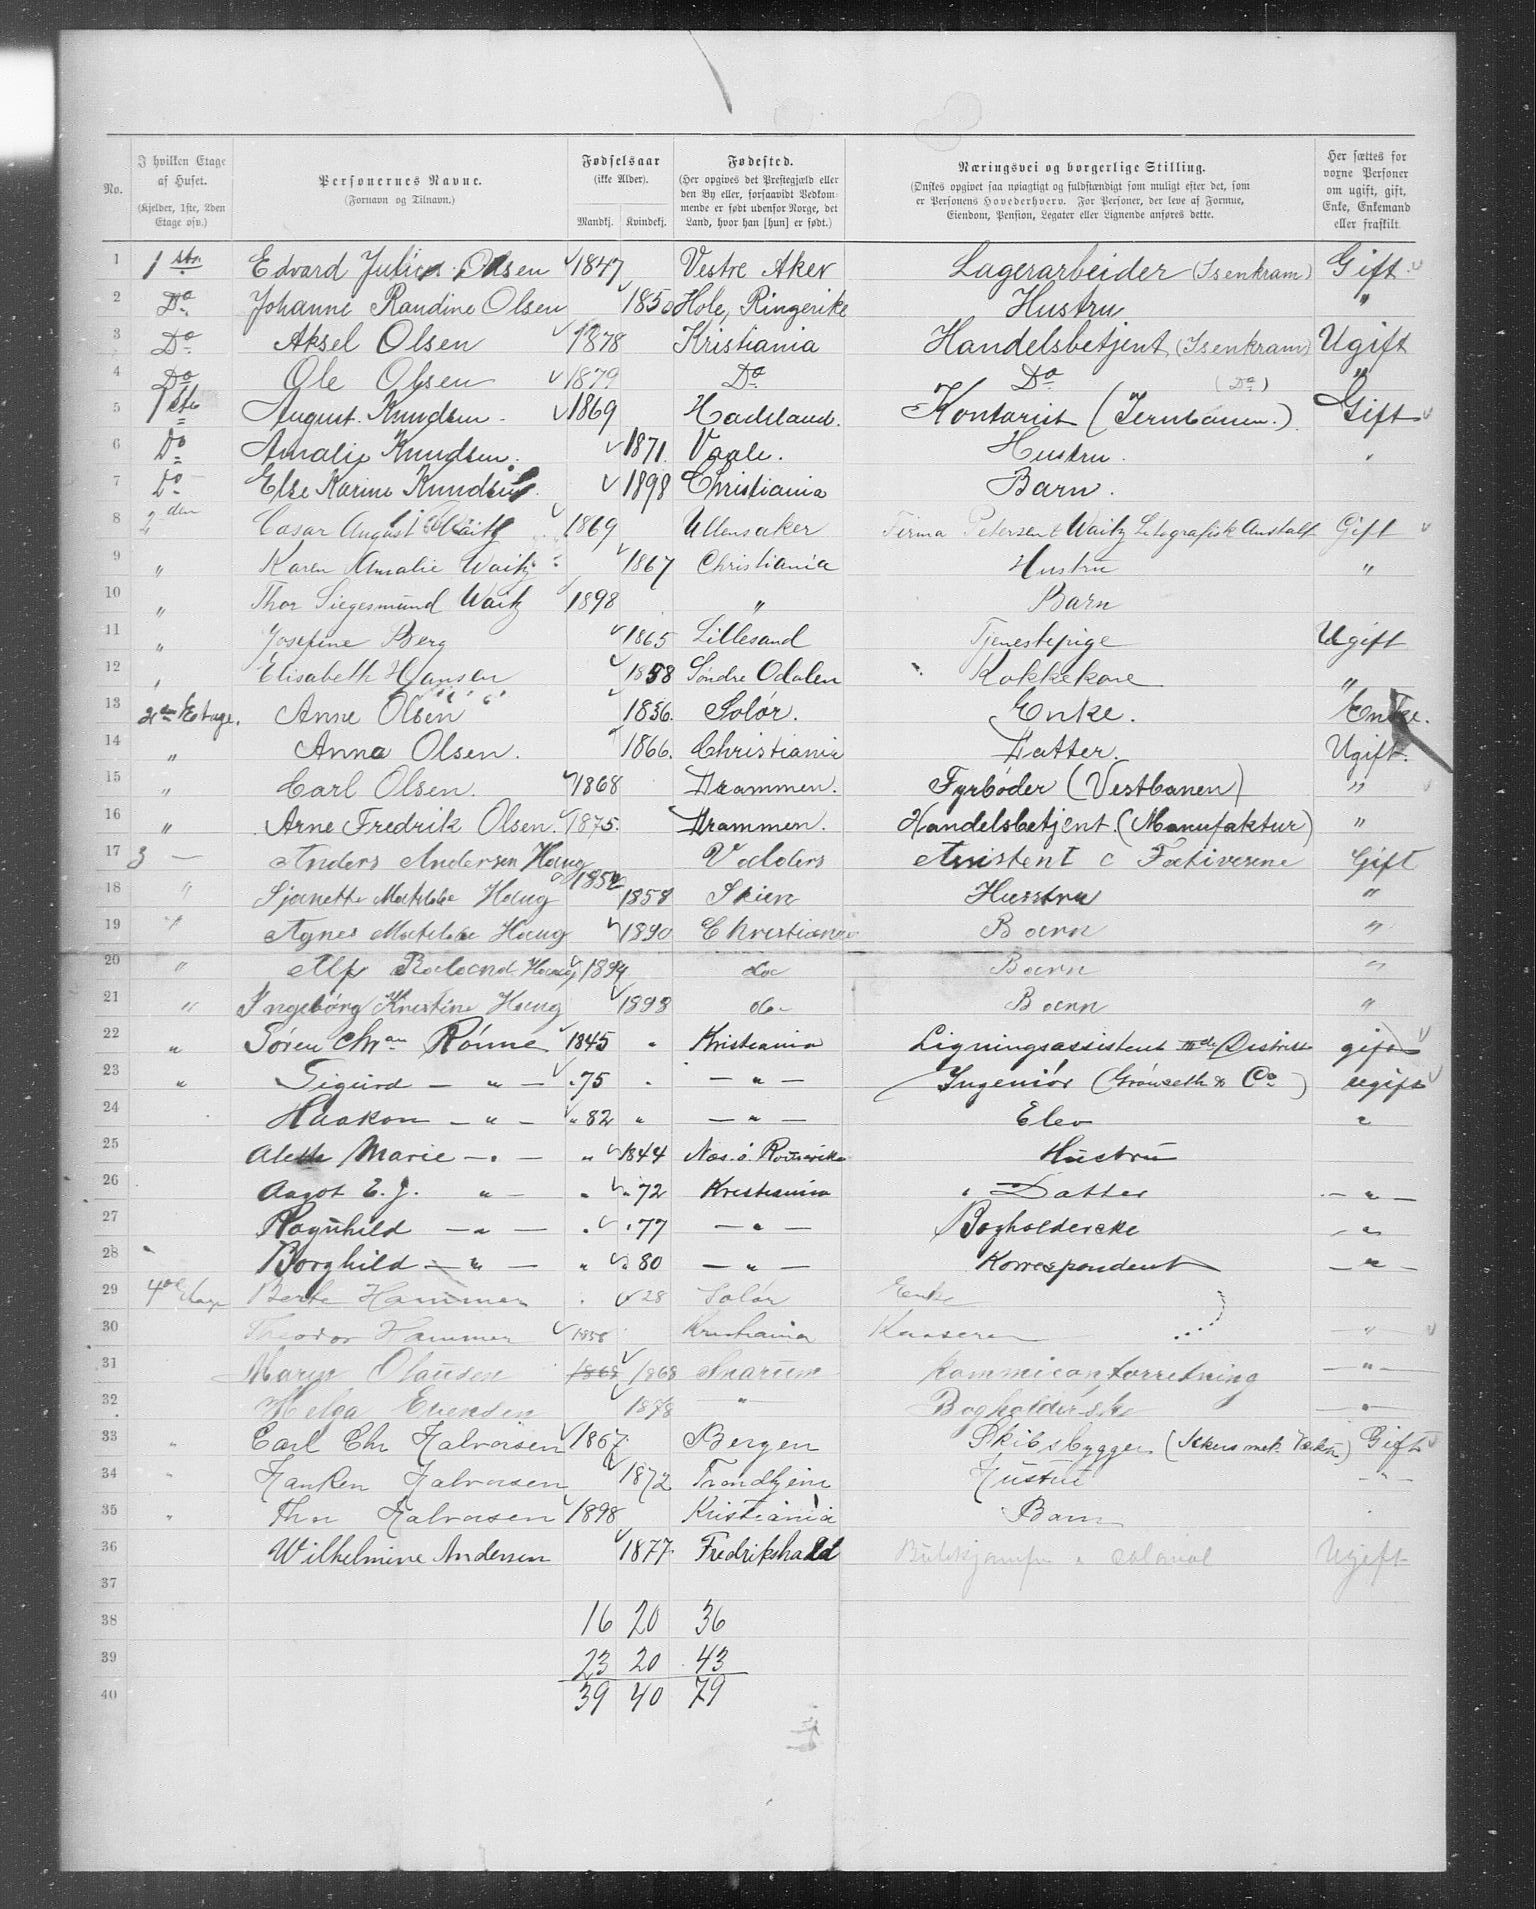 No. | I hvilken Etage af Huset. (Kjelder, 1ste, 2den Etage osv.) | Personernes Navne. (Fornavn og Tilnavn.) | Fødselsaar (ikke Alder). Mandkj. | Kvindekj. | Fødested. (Her opgives det Prestegjæld eller den By eller, forsaavidt Vedkommende er født udenfor Norge, det Land, hvor han [hun] er født.) | Næringsvei og borgerlige Stilling. (Ønskes opgivet saa nøiagtigt og fuldstændigt som muligt efter det, som er Personens Hovederhverv. For Personer, der leve af Formue, Eiendom, Pension, Legater eller Lignende anføres dette. | Her sættes for voxne Personer om ugift, gift, Enke, Enkemand eller fraskilt.
1 1 ste Edvard Julius Olsen 1847 Vestre Aker Lagerarbeider (Isenkram) Gift
2 Do Johanne Randine Olsen 1850 Hole, Ringerike Hustru "
3 Do Aksel Olsen 1878 Kristiania Handelsbetjent (Isenkram) Ugift
4 Do Ole Olsen 1879 Do Do (Do) "
5 1 ste August Knudsen 1869 Hadeland. Kontorist (Jernbanen.) Gift
6 Do Amalie Knudsen. 1871. Vaale. Hustru. "
7 Do Else Karine Knudsen. 1898 Christiania Barn.
8 2 den Cæsar August Waitz 1869 Ullensaker Firma Petersen & Waitz Litografisk Anstalt Gift
9 " Karen Amalie Waitz 1867 Christiania Hustru "
10 " Thor Siegesmund Waitz 1898 " Barn
11 " Josefine Berg 1865 Lillesand Tjenestepige Ugift
12 " Elisabeth Hansen 1858 Søndre Odalen Kokkekone "
13 2den Etage. Anne Olsen 1836. Solør. Enke. Enke.
14 " Anna Olsen. 1866. Christiania Datter. Ugift.
15 " Carl Olsen. 1868 Drammen. Fyrbøder (Vestbanen) "
16 " Arne Fredrik Olsen. 1875. Drammen. Handelsbetjent. (Manufaktur) "
17 3 — Anders Andersen Haug 1852 Valders Assistent Gift
18 " Sjanette Matilde Haug 1858 Skien Husstru "
19 " Agnes Matilde Haug 1890 Christiania Barn "
20 " Alf Haug 1894 do Barn "
21 " Ingebørg Kristine Haug 1893 do Barn "
22 " Søren Chran Rønne 1845 " Kristiania Ligningsassistent Distrikt gift
23 " Sigurd — " — " 75 " — " — Ingeniør (Grønseth & Co) ugift
24 Haakon — " — " 82 " — " — Elev "
25 Marie — " — " 1844 Næs. ö. Romerike Hustru
26 Aagot E. J. " — " " 72 Kristiania Datter — " —
27 Ragnhild — " — " " 77 — " — Bogholderske — " —
28 Borghild — " — " " 80 — " — Korrespondent — " —
29 4de Etage Berte Hammer " 28 Solør Enke
30 Theodor Hammer 1858 Kristiania Kasserer — " —
31 Maryn Olausen 1868 1868 Snarum Kommisionsforretning — " —
32 Helga Evensen 1878 — " — Bogholderske — " —
33 " Carl Chr Halvorsen 1867 Bergen Skibsbygger (Akers mek. Værkst) Gift
34 " Halvorsen 1872 Trondhjem Hustru — " —
35 " Thor Halvorsen 1898 Kristiania Barn
36 Wilhelmine Andersen 1877 Fredrikshald Ugift
37
38 16 20 36
39 23 20 43
40 39 40 79